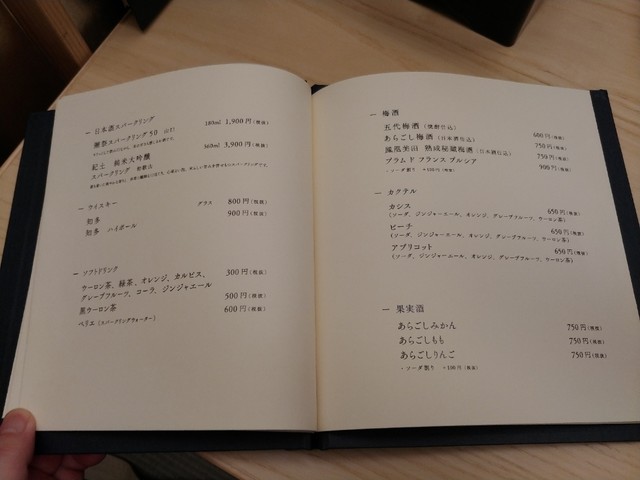 一 日本酒スパークリング
獺祭スパークリング50 山口 180ml 1,900円(税抜)
紀土 純米大吟醸
スパークリング 和歌山 360ml 3,900円(税抜)
一 ウイスキー グラス
知多 800円(税抜)
知多 ハイボール 900円(税抜)
一 ソフトドリンク
ウーロン茶、緑茶、オレンジ、カルピス、
グレープフルーツ、コーラ、ジンジャエール 300円(税抜)
黒ウーロン茶 500円(税抜)
ペリエ(スパークリングウォーター) 600円(税抜)
一 梅酒
五代梅酒(焼酎仕込)
あらごし梅酒(日本酒仕込) 600円(税抜)
鳳凰美田 熟成秘蔵梅酒(日本酒仕込) 750円(税抜)
プラム ド フランス プルシア 750円(税抜)
・ソーダ割り +100円(税抜) 900円(税抜)
一 カクテル
カシス 650円(税抜)
(ソーダ、ジンジャーエール、オレンジ、グレープフルーツ、ウーロン茶)
ピーチ 650円(税抜)
(ソーダ、ジンジャーエール、オレンジ、グレープフルーツ、ウーロン茶)
アプリコット 650円(税抜)
(ソーダ、ジンジャーエール、オレンジ、グレープフルーツ、ウーロン茶)
一 果実酒
あらごしみかん 750円(税抜)
あらごしもも 750円(税抜)
あらごしりんご 750円(税抜)
・ソーダ割り +100円(税抜)